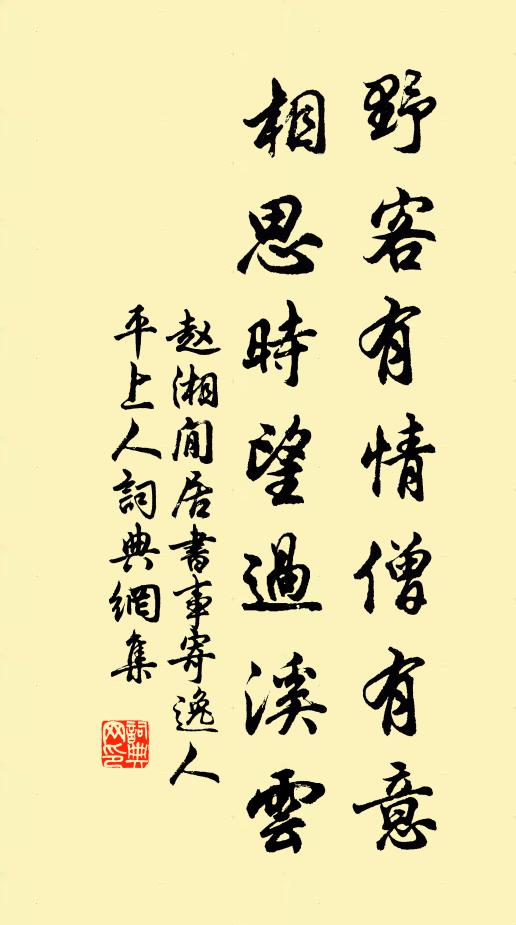 野客有情僧有意
相思時望過溪雲
赵湘閒居書事寄逸人
平上人詞典網集
詞典